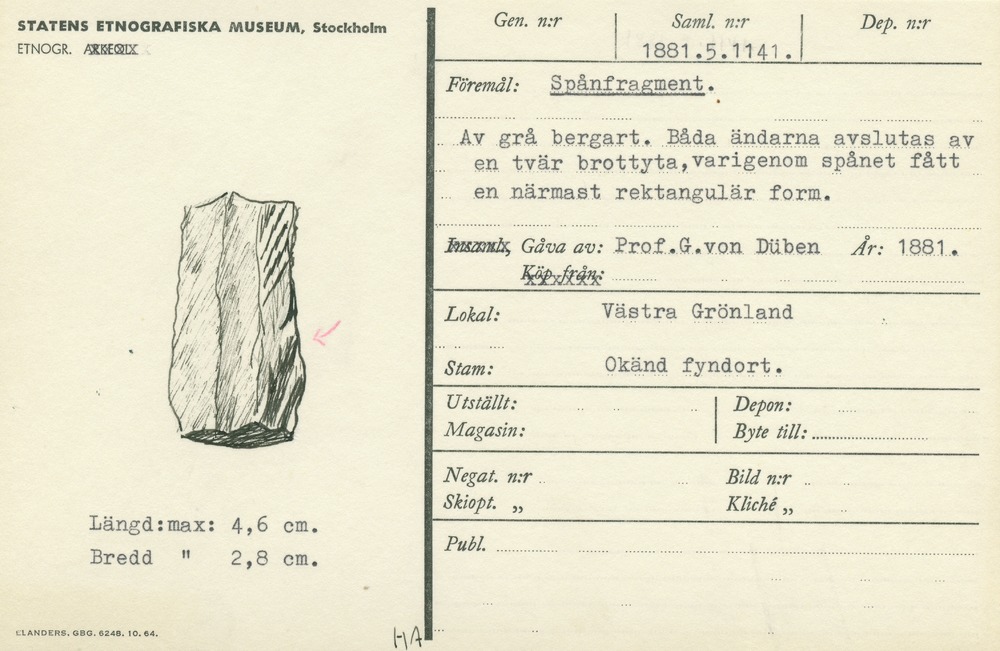 STATENS ETNOGRAFISKA MUSEUM, Stockholm
ETNOGR. ARKEOL.
Längd:max: 4,6 cm.
Bredd " 2,8 cm.
ELANDERS. GBG. 6248. 10. 64.
HA
Gen. n:r Saml. n:r Dep. n:r
1881.5.1141.
Föremål: Spånfragment.
Av grå bergart. Båda ändarna avslutas av
en tvär brottyta, varigenom spånet fått
en närmast rektangulär form.
Insaml., Gåva av: Prof.G.von Düben År: 1881.
Köp från:
Lokal: Västra Grönland
Stam: Okänd fyndort.
Utställt: Depon:
Magasin: Byte till:
Negat. n:r Bild n:r
Skiopt. „ Kliché „
Publ.